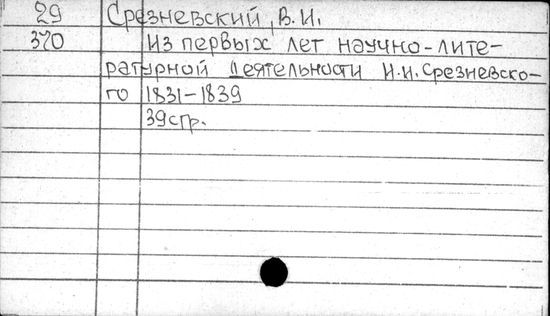 29 Срезневский, В.И.
370 Из первых лет научно-лите-
ратурной деятельности И.И. Срезневско-
го 1831-1839
39стр.